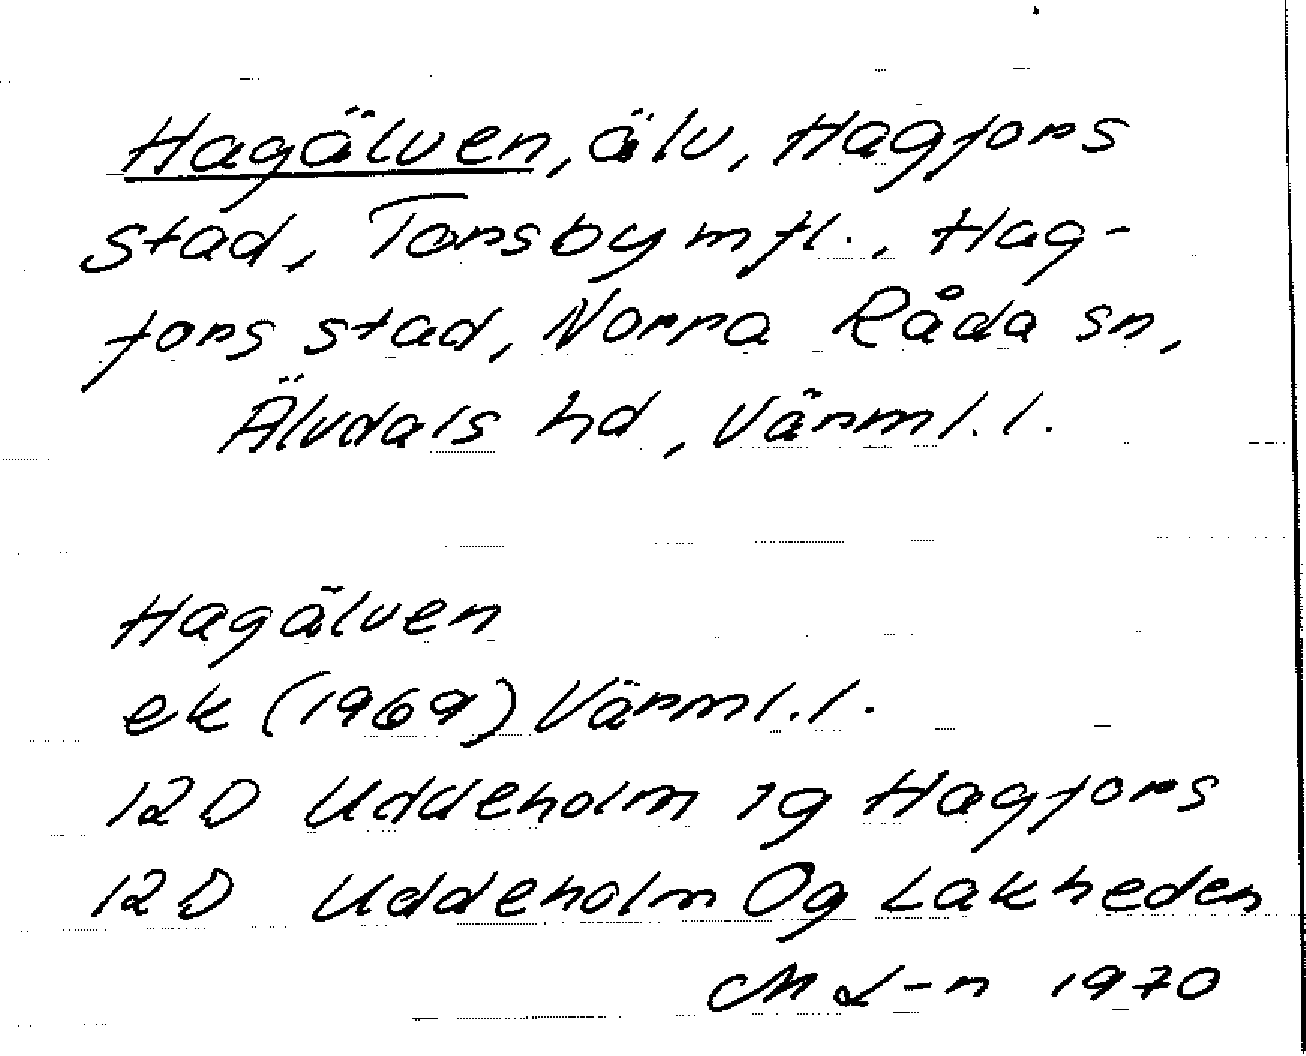 Hagälven, älv, Hagfors
stad, Torsby m fl., Hag-
fors stad, Norra Råda sn,
Älvdals hd, Värml. l.
Hagälven
ek (1969) Värml. l.
12D Uddeholm 1g Hagfors
12D Uddeholm 0g Lakheden
M L-n 1970